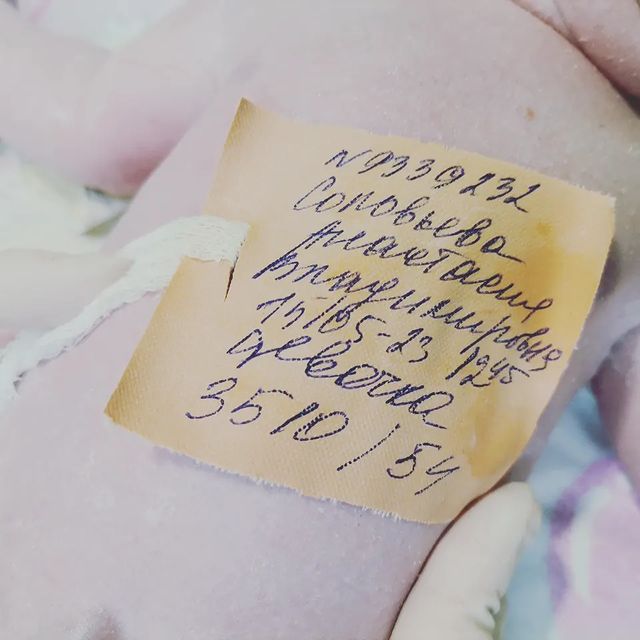 N9339232
Соловьева
Анастасия
Владимировна
15/05-23 1245
девочка
3510/54